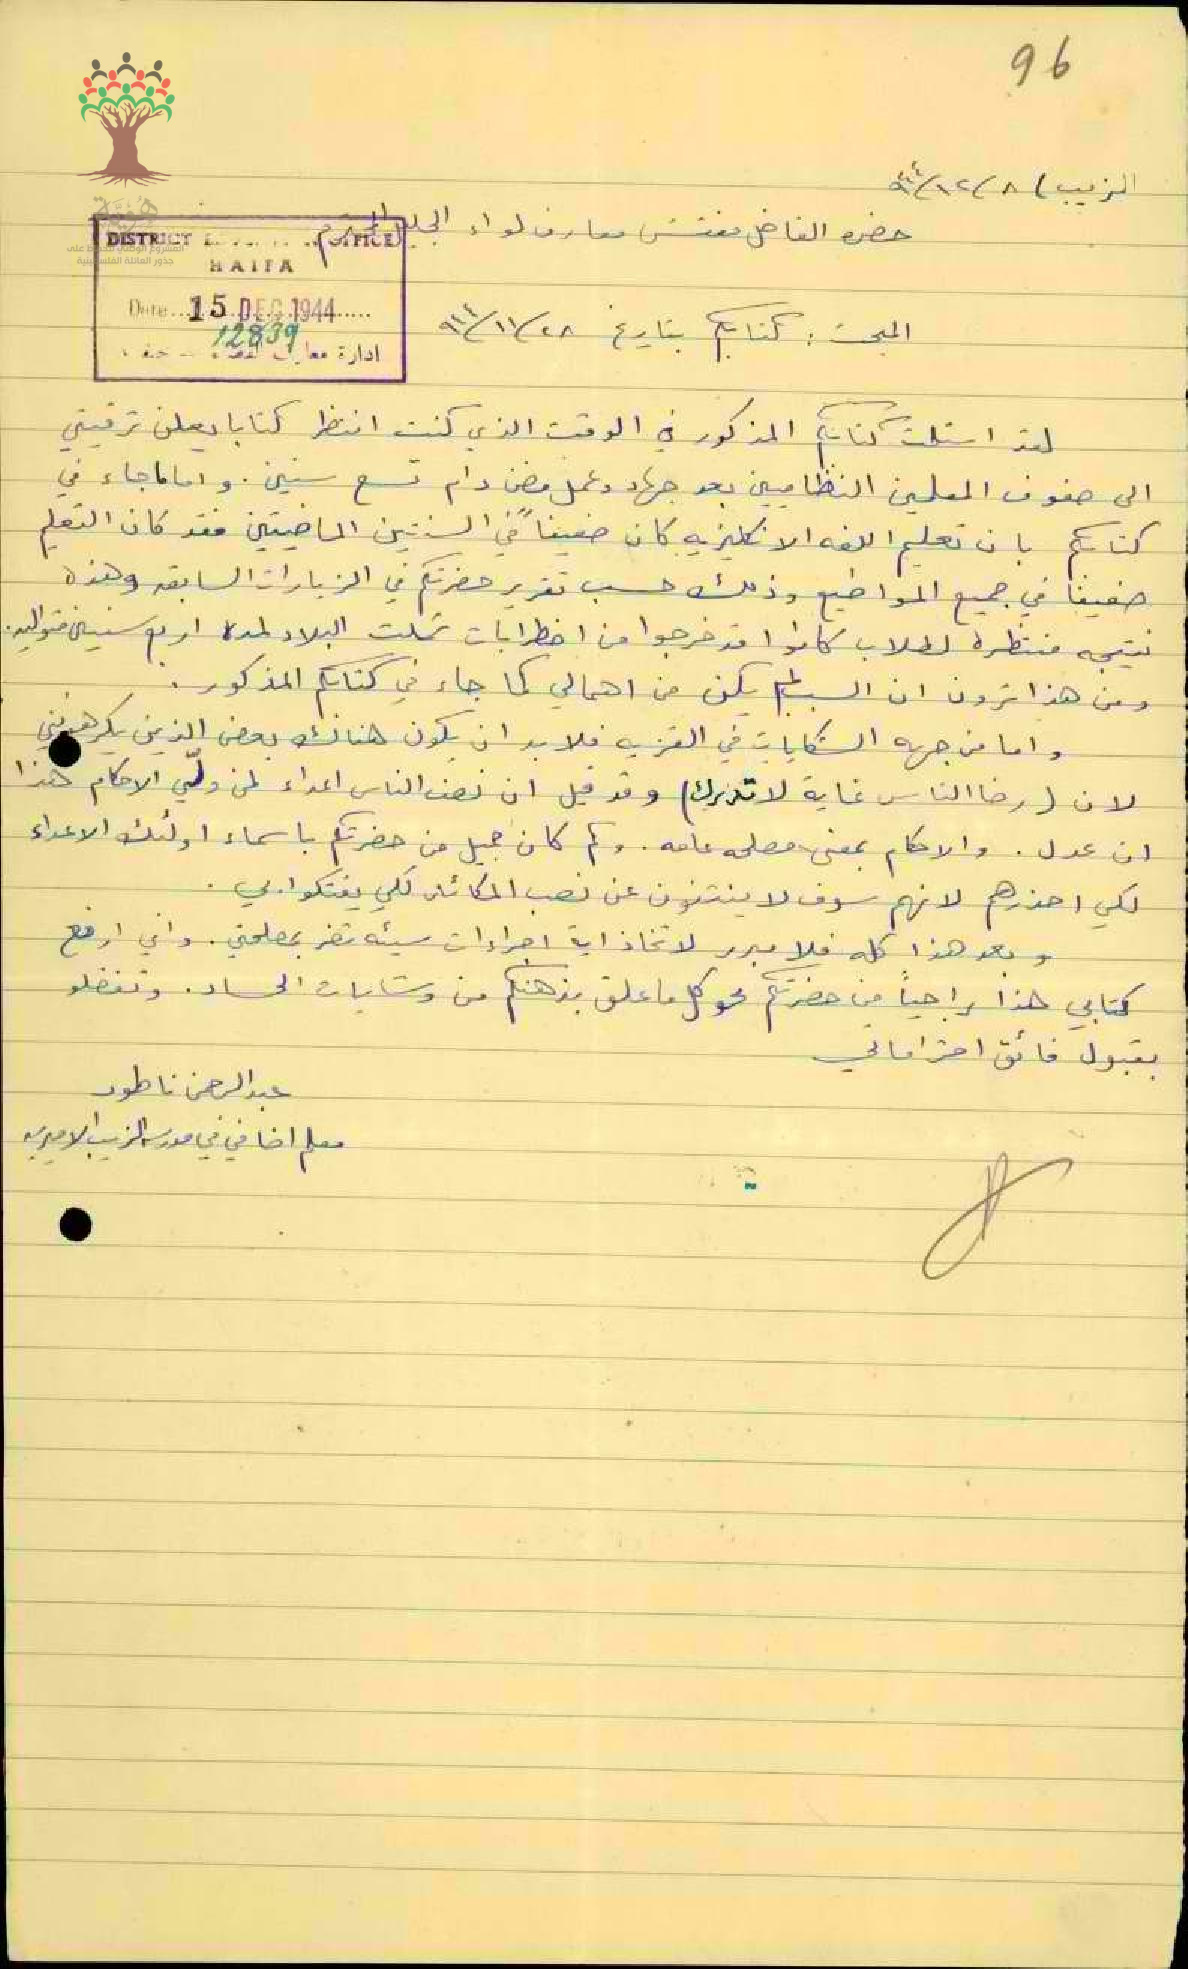 96
الزيب) ٨/١٢/٩٤٤
حضرة الفاضل مفتش معارف لواء الجليل المحترم
هُوِيَّة
المشروع الوطني للحفاظ على
جذور العائلة الفلسطينية
DISTRICT OFFICE
HAIFA
Date 15 DEC 1944
12839
ادارة معارف لواء حيفا
المبحث : كتابكم بتاريخ ٢٨/١١/٩٤٤
لقد استلمت كتابكم المذكور في الوقت الذي كنت انتظر كتابا يعلن ترقيتي
الى صفوف المعلمين النظاميين بعد جهاد وعمل مضن دام تسع سنين . واما ما جاء في
كتابكم بان تعليم اللغه الانكليزيه كان ضعيفاً في السنتين الماضيتين فقد كان التعليم
ضعيفا في جميع المواضيع وذلك حسب تقرير حضرتكم في الزيارات السابقه وهذه
نتيجه منتظرة لطلاب كانوا قد خرجوا من اضطرابات شملت البلاد لمدة اربع سنين متواليه .
ومن هذا ترون ان السبب لم يكن من اهمالي كما جاء في كتابكم المذكور .
واما من جهه الشكايات في القريه فلا بد ان يكون هنالك بعض الذين يكرهونني
لان (رضا الناس غاية لا تدرك) وقد قيل ان نصف الناس اعداء لمن ولّي الاحكام هذا
ان عدل . والاحكام بمعنى مصلحه عامه . وكم كان جميل من حضرتكم باسماء اولئك الاعداء
لكي احذرهم لانهم سوف لا ينتهون عن نصب المكائد لكي يفتكوا بي .
وبعد هذا كله فلا مبرر لاتخاذ اية اجراءات سيئه تضر بمصلحتي . واني ارفع
كتابي هذا راجياً من حضرتكم محو كل ما علق بذهنكم من وشايات الحساد . وتفضلو
بقبول فائق احتراماتي
عبد الرحمن ناطور
معلم اضافي في مدرسة الزيب الاميريه